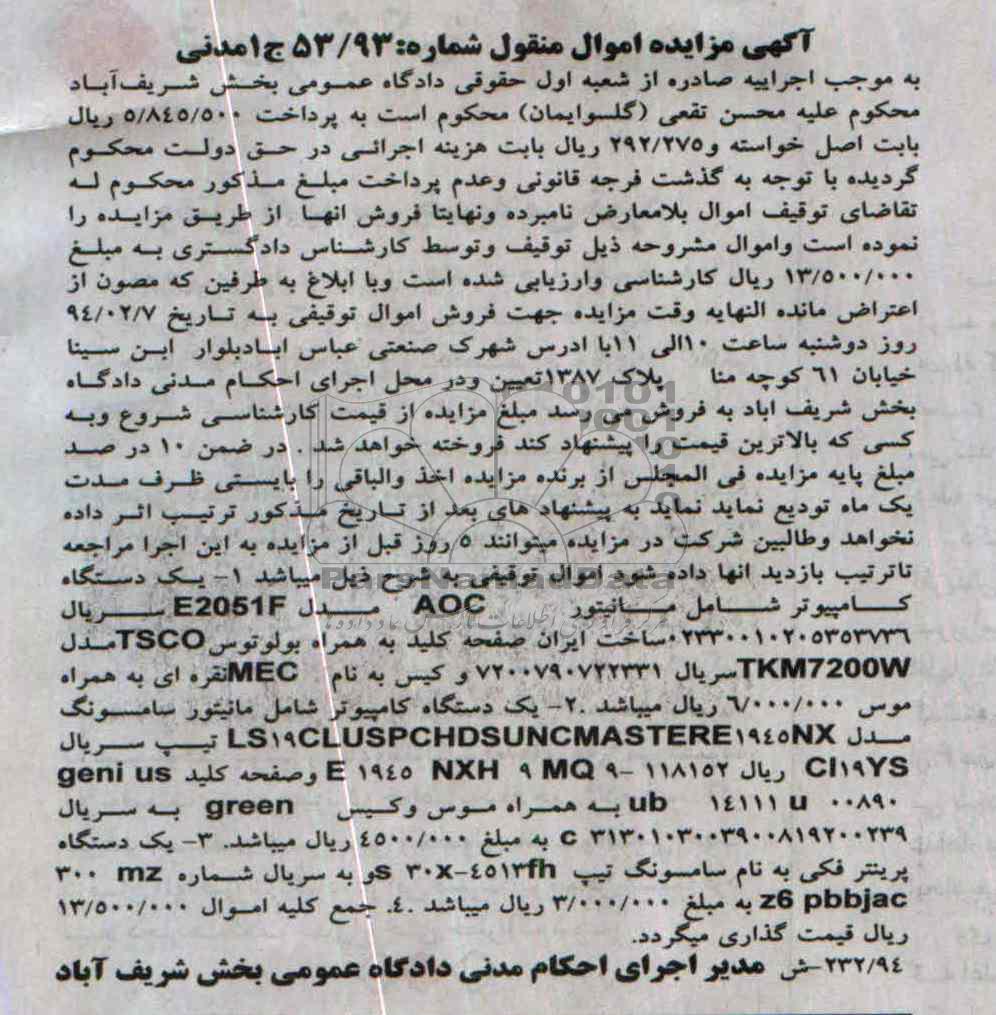 آگهی مزایده اموال منقول شماره: ۵۳/۹۳ ج۱مدنی
به موجب اجراییه صادره از شعبه اول حقوقی دادگاه عمومی بخش شریف‌آباد
محکوم علیه محسن تقعی (گلسوایمان) محکوم است به پرداخت ۵/۸٤۵/۵۰۰ ریال
بابت اصل خواسته و۲۹۲/۲۷۵ ریال بابت هزینه اجرائی در حق دولت محکوم
گردیده با توجه به گذشت فرجه قانونی وعدم پرداخت مبلغ مذکور محکوم له
تقاضای توقیف اموال بلامعارض نامبرده ونهایتا فروش انها از طریق مزایده را
نموده است واموال مشروحه ذیل توقیف وتوسط کارشناس دادگستری به مبلغ
۱۳/۵۰۰/۰۰۰ ریال کارشناسی وارزیابی شده است وبا ابلاغ به طرفین که مصون از
اعتراض مانده النهایه وقت مزایده جهت فروش اموال توقیفی به تاریخ ۹٤/۰۲/۷
روز دوشنبه ساعت ۱۰الی ۱۱با ادرس شهرک صنعتی عباس ابادبلوار ابن سینا
خیابان ٦۱ کوچه منا پلاک ۱۳۸۷تعیین ودر محل اجرای احکام مدنی دادگاه
بخش شریف اباد به فروش می رسد مبلغ مزایده از قیمت کارشناسی شروع وبه
کسی که بالاترین قیمت را پیشنهاد کند فروخته خواهد شد . در ضمن ۱۰ در صد
مبلغ پایه مزایده فی المجلس از برنده مزایده اخذ والباقی را بایستی ظرف مدت
یک ماه تودیع نماید نماید به پیشنهاد های بعد از تاریخ مذکور ترتیب اثر داده
نخواهد وطالبین شرکت در مزایده میتوانند ۵ روز قبل از مزایده به این اجرا مراجعه
تاترتیب بازدید انها داده شود اموال توقیفی به شرح ذیل میباشد ۱- یک دستگاه
کامپیوتر شامل مانیتور AOC مدل E2051F سریال
۰۲۳۳۰۰۱۰۲۰۵۳۵۳۷۳٦ساخت ایران صفحه کلید به همراه بولوتوس TSCOمدل
TKM7200Wسریال ۷۲۰۰۷۹۰۷۲۲۳۳۱ و کیس به نام MECنقره ای به همراه
موس ٦/۰۰۰/۰۰۰ ریال میباشد .۲- یک دستگاه کامپیوتر شامل مانیتور سامسونگ
مدل LS۱۹CLUSPCHDSUNCMASTERE۱۹٤۵NX تیپ سریال
CI۱۹YS ریال ۱۱۸۱۵۲ -۹ MQ ۹ E ۱۹٤۵ NXH وصفحه کلید geni us
ub ۱٤۱۱۱ u ۰۰۸۹۰ به همراه موس وکیس green به سریال
c ۳۱۳۰۱۰۳۰۰۳۹۰۰۸۱۹۲۰۰۲۳۹ به مبلغ ٤۵۰۰/۰۰۰ ریال میباشد. ۳- یک دستگاه
پرینتر فکی به نام سامسونگ تیپ s ۳۰x-٤۵۱۳fhو به سریال شماره ۳۰۰ mz
z6 pbbjac به مبلغ ۳/۰۰۰/۰۰۰ ریال میباشد .٤. جمع کلیه اموال ۱۳/۵۰۰/۰۰۰
ریال قیمت گذاری میگردد.
۲۳۲/۹٤-ش مدیر اجرای احکام مدنی دادگاه عمومی بخش شریف آباد